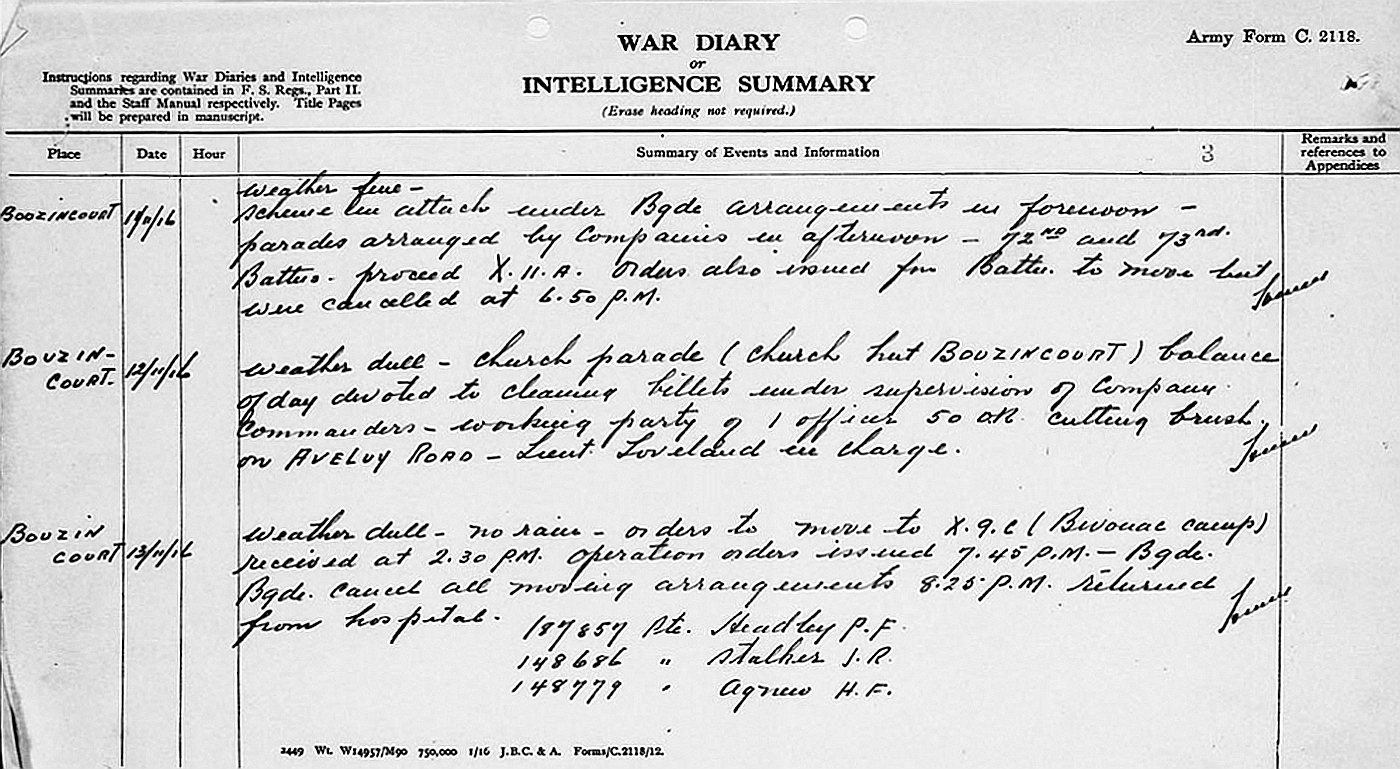 WAR DIARY
or
INTELLIGENCE SUMMARY
(Erase heading not required.)
Army Form C. 2118.
Instructions regarding War Diaries and Intelligence
Summaries are contained in F. S. Regs., Part II.
and the Staff Manual respectively. Title Pages
will be prepared in manuscript.
Place Date Hour Summary of Events and Information 3 Remarks and
references to
Appendices
weather fine -
BOOZINCOURT 11/11/16 scheme in attack under Bgde arrangements in forenoon -
parades arranged by Companies in afternoon - 72ND and 73rd.
Battns. proceed X.11.A. Orders also issued for Battn. to move but
were cancelled at 6.50 P.M.
BOUZIN-
COURT. 12/11/16 weather dull - church parade (church hut BOUZINCOURT) balance
of day devoted to cleaning billets under supervision of Company
Commanders - working party of 1 officer 50 O.R. cutting brush.
on AVELUY ROAD - Lieut Loveland in charge.
BOUZIN
COURT 13/11/16 weather dull - no rain - orders to move to X.9.C (Bivouac camp)
received at 2.30 P.M. operation orders issued 7.45 P.M. - Bgde.
Bgde. cancel all moving arrangements 8.25 P.M. returned
from hospital.
187857 Pte. Headley P.F.
148686 " Stalker J.R.
148779 " Agnew H.F.
2449 Wt. W14957/M90 750,000 1/16 J.B.C. & A. Forms/C.2118/12.